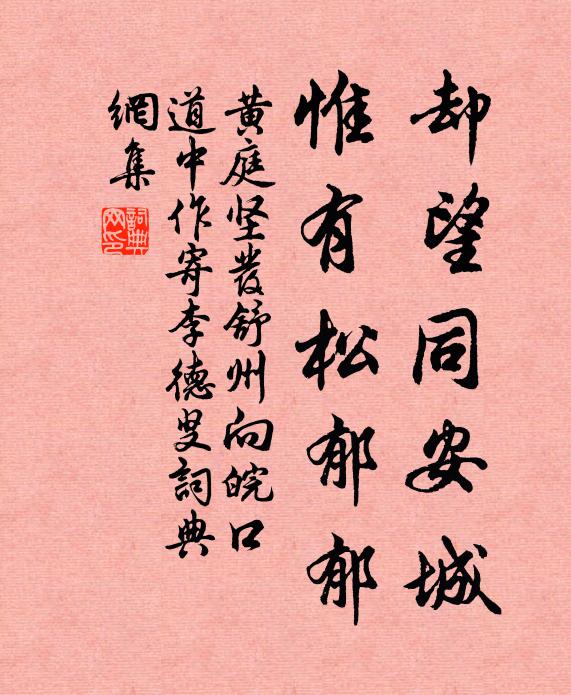 却望同安城
惟有松郁郁
黄庭坚發舒州向皖口
道中作寄李德叟詞典
網集
詞典網印